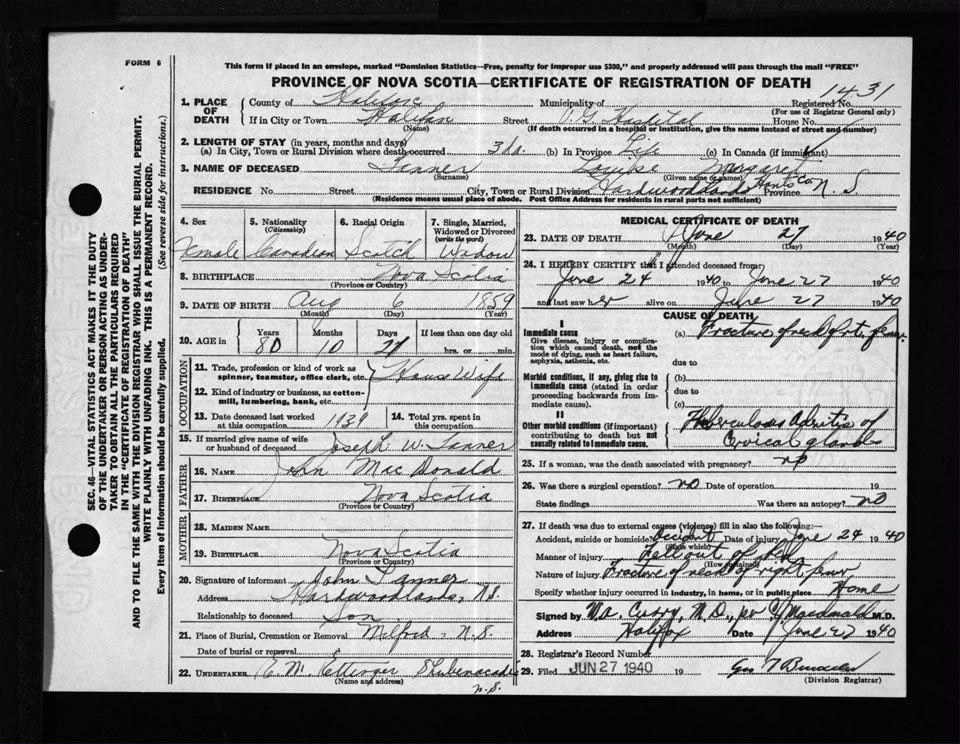 FORM 6
This form if placed in an envelope, marked "Dominion Statistics—Free, penalty for improper use $300," and properly addressed will pass through the mail "FREE"
PROVINCE OF NOVA SCOTIA—CERTIFICATE OF REGISTRATION OF DEATH
1431
1. PLACE OF DEATH
County of Halifax Municipality of Registered No.
(For use of Registrar General only)
If in City or Town Halifax Street V.G. Hospital House No.
(Name) (If death occurred in a hospital or institution, give the name instead of street and number)
2. LENGTH OF STAY (in years, months and days)
(a) In City, Town or Rural Division where death occurred 3 da. (b) In Province Life (c) In Canada (if immigrant)
3. NAME OF DECEASED Tanner Louise Margaret
(Surname) (Given name or names)
RESIDENCE No. Street City, Town or Rural Division Hardwoodlands Hants Co. Province N.S.
(Residence means usual place of abode. Post Office Address for residents in rural parts not sufficient)
4. Sex 5. Nationality (Citizenship) 6. Racial Origin 7. Single, Married, Widowed or Divorced (write the word)
Female Canadian Scotch Widow
8. BIRTHPLACE Nova Scotia
(Province or Country)
9. DATE OF BIRTH Aug 6 1859
(Month) (Day) (Year)
10. AGE in Years Months Days If less than one day old
80 10 21 hrs. or min.
OCCUPATION
11. Trade, profession or kind of work as spinner, teamster, office clerk, etc. House Wife
12. Kind of industry or business, as cotton-mill, lumbering, bank, etc.
13. Date deceased last worked at this occupation 1939 14. Total yrs. spent in this occupation
15. If married give name of wife or husband of deceased Joseph W. Tanner
FATHER
16. NAME John MacDonald
17. BIRTHPLACE Nova Scotia
(Province or Country)
MOTHER
18. MAIDEN NAME
19. BIRTHPLACE Nova Scotia
(Province or Country)
20. Signature of informant John Tanner
Address Hardwoodlands, N.S.
Relationship to deceased Son
21. Place of Burial, Cremation or Removal Milford, N.S.
Date of burial or removal
22. UNDERTAKER E. M. Ettinger Shubenacadie
(Name and address) N.S.
MEDICAL CERTIFICATE OF DEATH
23. DATE OF DEATH June 27 1940
(Month) (Day) (Year)
24. I HEREBY CERTIFY that I attended deceased from
June 24 1940 to June 27 1940
and last saw her alive on June 27 1940
CAUSE OF DEATH
I
Immediate cause (a) Fracture of neck of rt. femur
Give disease, injury or complication which caused death, not the mode of dying, such as heart failure, asphyxia, asthenia, etc.
due to
Morbid conditions, if any, giving rise to immediate cause (stated in order proceeding backwards from immediate cause). (b)
due to
(c)
II
Other morbid conditions (if important) contributing to death but not causally related to immediate cause. Tuberculous Adenitis of Cervical glands
25. If a woman, was the death associated with pregnancy? no
26. Was there a surgical operation? no Date of operation 19
State findings Was there an autopsy? no
27. If death was due to external causes (violence) fill in also the following:—
Accident, suicide or homicide? Accident Date of injury June 24 1940
(State which)
Manner of injury Fell out of
(How sustained)
Nature of injury Fracture of neck of right femur
Specify whether injury occurred in industry, in home, or in public place Home
Signed by M.D., per Macdonald M.D.
Address Halifax Date June 27 1940
28. Registrar's Record Number
29. Filed JUN 27 1940 19
(Division Registrar)
SEC. 46—VITAL STATISTICS ACT MAKES IT THE DUTY
OF THE UNDERTAKER OR PERSON ACTING AS UNDER-
TAKER TO OBTAIN ALL THE PARTICULARS REQUIRED
IN THE "CERTIFICATE OF REGISTRATION OF DEATH"
AND TO FILE THE SAME WITH THE DIVISION REGISTRAR WHO SHALL ISSUE THE BURIAL PERMIT.
WRITE PLAINLY WITH UNFADING INK. THIS IS A PERMANENT RECORD.
Every item of Information should be carefully supplied. (See reverse side for instructions.)